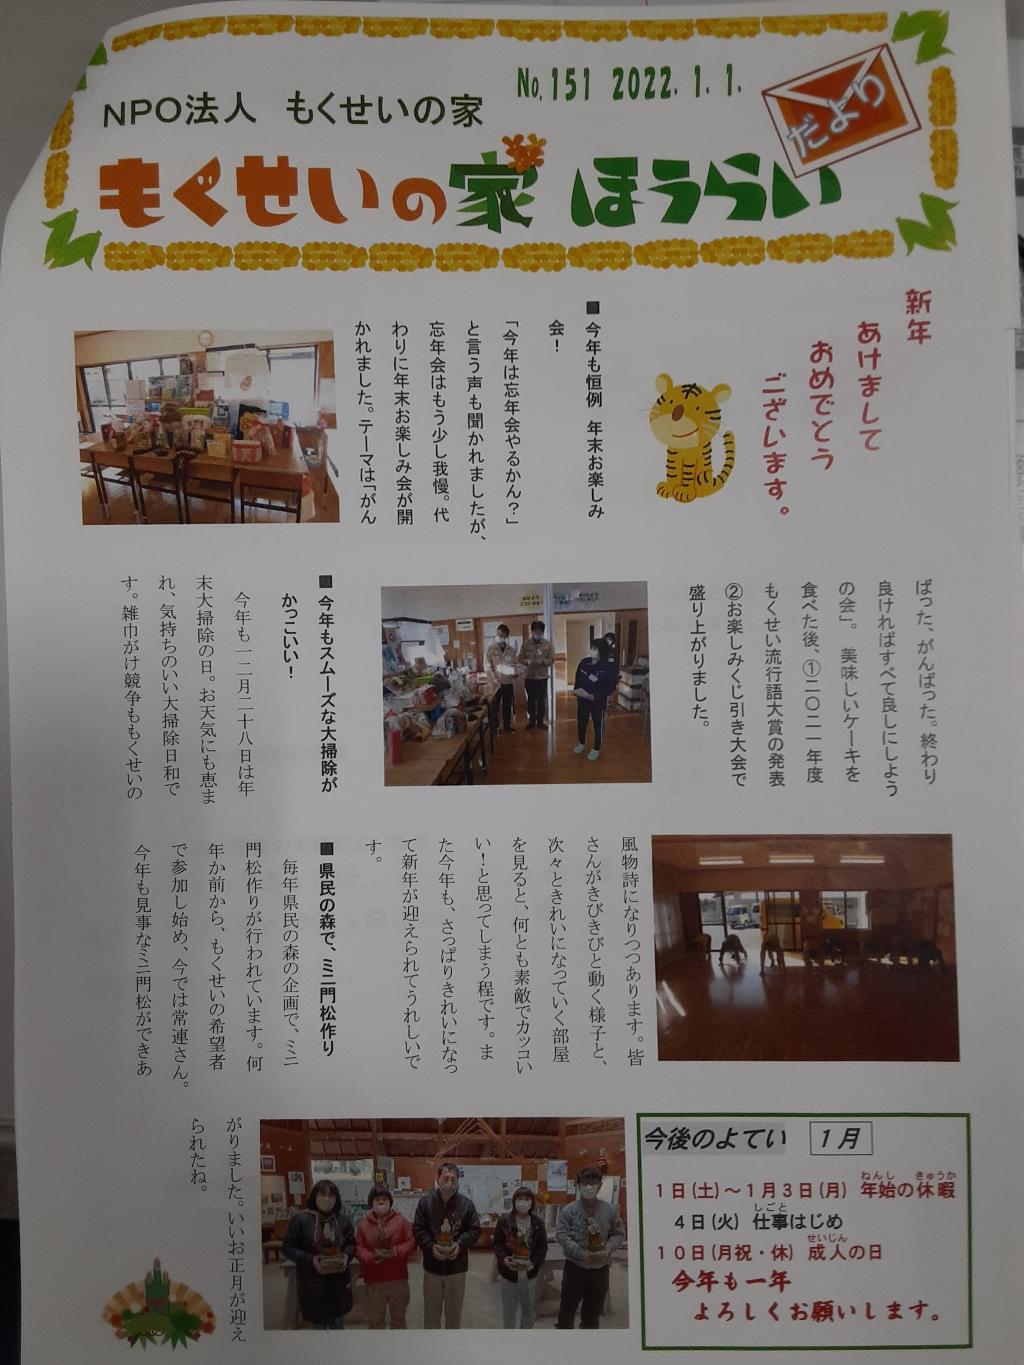 No.151 2022.1.1.
NPO法人 もくせいの家
もくせいの家 ほうらい
だより
新年
あけまして
おめでとう
ございます。
■今年も恒例 年末お楽しみ
会！
「今年は忘年会やるかん？」
と言う声も聞かれましたが、
忘年会はもう少し我慢。代
わりに年末お楽しみ会が開
かれました。テーマは「がん
ばった、がんばった。終わり
良ければすべて良しにしよう
の会」。美味しいケーキを
食べた後、①二〇二一年度
もくせい流行語大賞の発表
②お楽しみくじ引き大会で
盛り上がりました。
■今年もスムーズな大掃除が
かっこいい！
今年も一二月二十八日は年
末大掃除の日。お天気にも恵ま
れ、気持ちのいい大掃除日和で
す。雑巾がけ競争ももくせいの
風物詩になりつつあります。皆
さんがきびきびと動く様子と、
次々ときれいになっていく部屋
を見ると、何とも素敵でカッコい
い！と思ってしまう程です。ま
た今年も、さっぱりきれいになっ
て新年が迎えられてうれしいで
す。
■県民の森で、ミニ門松作り
毎年県民の森の企画で、ミニ
門松作りが行われています。何
年か前から、もくせいの希望者
で参加し始め、今では常連さん。
今年も見事なミニ門松ができあ
がりました。いいお正月が迎え
られたね。
今後のよてい 1月
1日(土)～1月3日(月) 年始の休暇
ねんし きゅうか
4日(火) 仕事はじめ
しごと
10日(月祝・休) 成人の日
せいじん
今年も一年
よろしくお願いします。